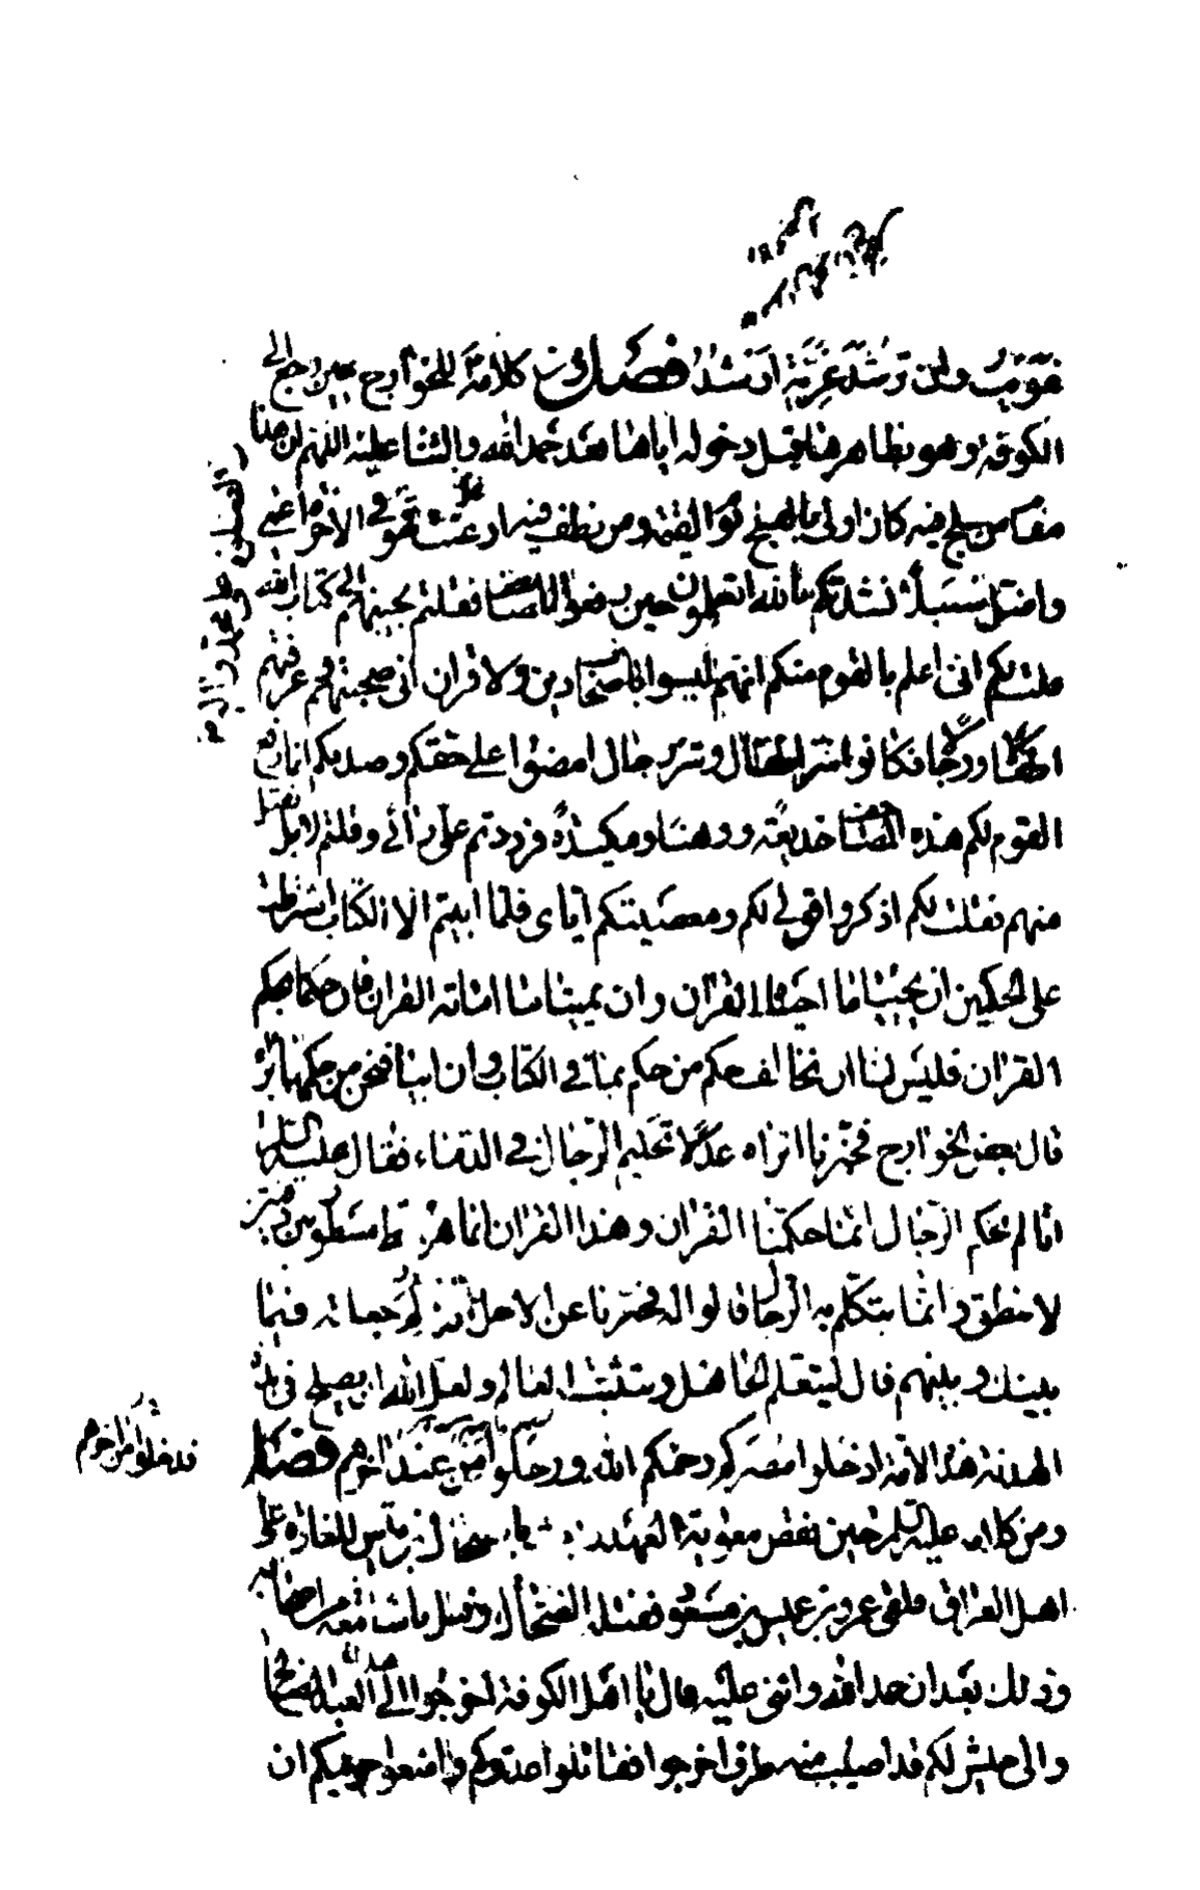 غويت وان ترشد غزية ارشد فصل من كلامه للخوارج حين رجع الى
الكوفة وهو بظاهرها قبل دخوله اياها بعد حمد الله والثناء عليه اللهم ان هذا
مقام من فلج فيه كان اولى بالفلج يوم القيمة ومن نطف فيه او عنت فهو في الاخرة اعمى
واضل سبيلا نشدتكم بالله اتعلمون حين رفعوا المصاحف فقلتم نجيبهم الى كتاب الله
قلت لكم انى اعلم بالقوم منكم انهم ليسوا باصحاب دين ولا قران انى صحبتهم وعرفتهم
اطفالا ورجالا فكانوا شر اطفال وشر رجال امضوا على حقكم وصدقكم انما رفع
القوم لكم هذه المصاحف خديعة ووهنا ومكيدة فرددتم على رائى وقلتم لا بل نقبل
منهم فقلت لكم اذكروا قولى لكم ومعصيتكم اياى فلما ابيتم الا الكتاب اشترطت
على الحكمين ان يحييا ما احياه القران وان يميتا ما اماته القران فان حكما بحكم
القران فليس لنا ان نخالف حكم من حكم بما فى الكتاب وان ابيا فنحن من حكمهما براء
قال بعض الخوارج فخبرنا اتراه عدلا تحكيم الرجال فى الدماء فقال عليه السلم
انا لم نحكم الرجال انما حكمنا القران وهذا القران انما هو خط مسطور بين دفتين
لا ينطق وانما يتكلم به الرجال قالوا له فخبرنا عن الاجل لم جعلته فيما
بينك وبينهم قال ليتعلم الجاهل ويتثبت العالم ولعل الله ان يصلح فى هذه
الهدنة هذه الامة ادخلوا مصركم رحمكم الله ورحلوا من عند اخرهم فصل
قد خلوا من اخرهم
ومن كلامه عليه السلم حين نقض معوية العهد وبعث بالضحاك بن قيس للغارة على
اهل العراق فلقى عمرو بن عميس بن مسعود فقتله الضحاك وقتل ناسا معه من اصحابه
وذلك بعد ان حمد الله واثنى عليه قال يا اهل الكوفة اخرجوا الى العبد الصالح
والى جيش لكم قد اصيب منه طرف اخرجوا فقاتلوا عدوكم وامنعوا حريمكم ان